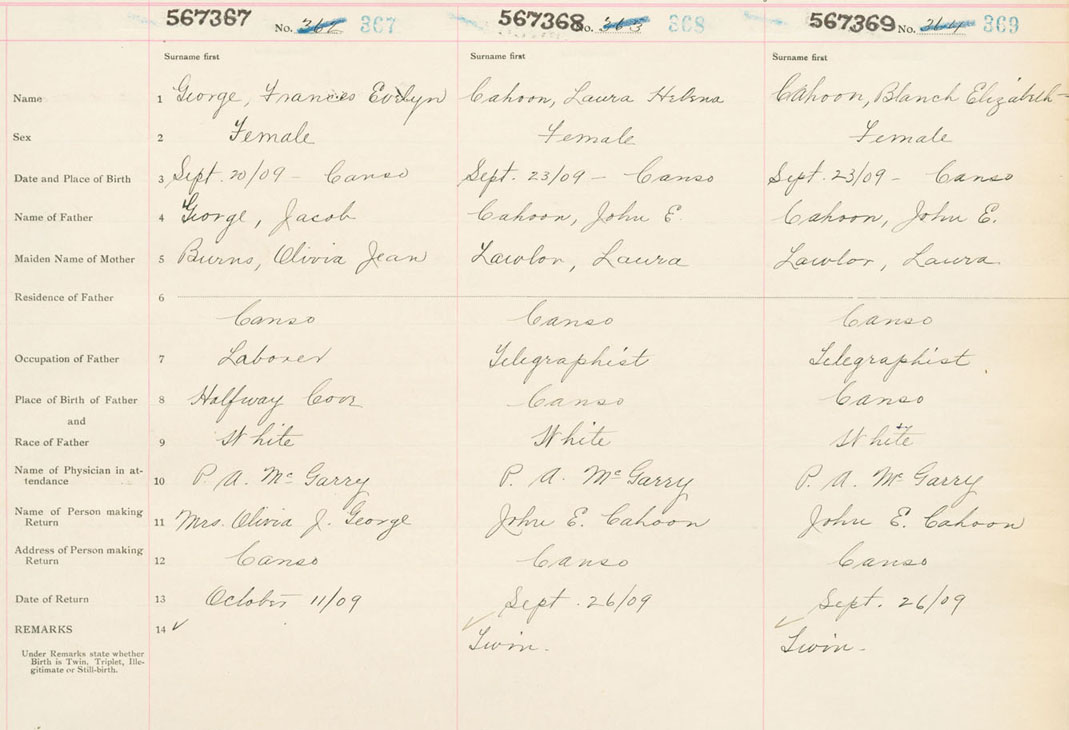 567367 No. 362 367 567368 No. 363 368 567369 No. 364 369
Surname first Surname first Surname first
Name 1 George, Frances Evelyn Cahoon, Laura Helena Cahoon, Blanch Elizabeth
Sex 2 Female Female Female
Date and Place of Birth 3 Sept. 20/09 - Canso Sept. 23/09 - Canso Sept. 23/09 - Canso
Name of Father 4 George, Jacob Cahoon, John E. Cahoon, John E.
Maiden Name of Mother 5 Burns, Olivia Jean Lawlor, Laura Lawlor, Laura
Residence of Father 6
Canso Canso Canso
Occupation of Father 7 Laborer Telegraphist Telegraphist
Place of Birth of Father 8 Halfway Cove Canso Canso
and
Race of Father 9 White White White
Name of Physician in at-
tendance 10 P. A. McGarry P. A. McGarry P. A. McGarry
Name of Person making
Return 11 Mrs. Olivia J. George John E. Cahoon John E. Cahoon
Address of Person making
Return 12 Canso Canso Canso
Date of Return 13 October 11/09 Sept. 26/09 Sept. 26/09
REMARKS 14 ✓ ✓ ✓
Twin. Twin.
Under Remarks state whether
Birth is Twin, Triplet, Ille-
gitimate or Still-birth.